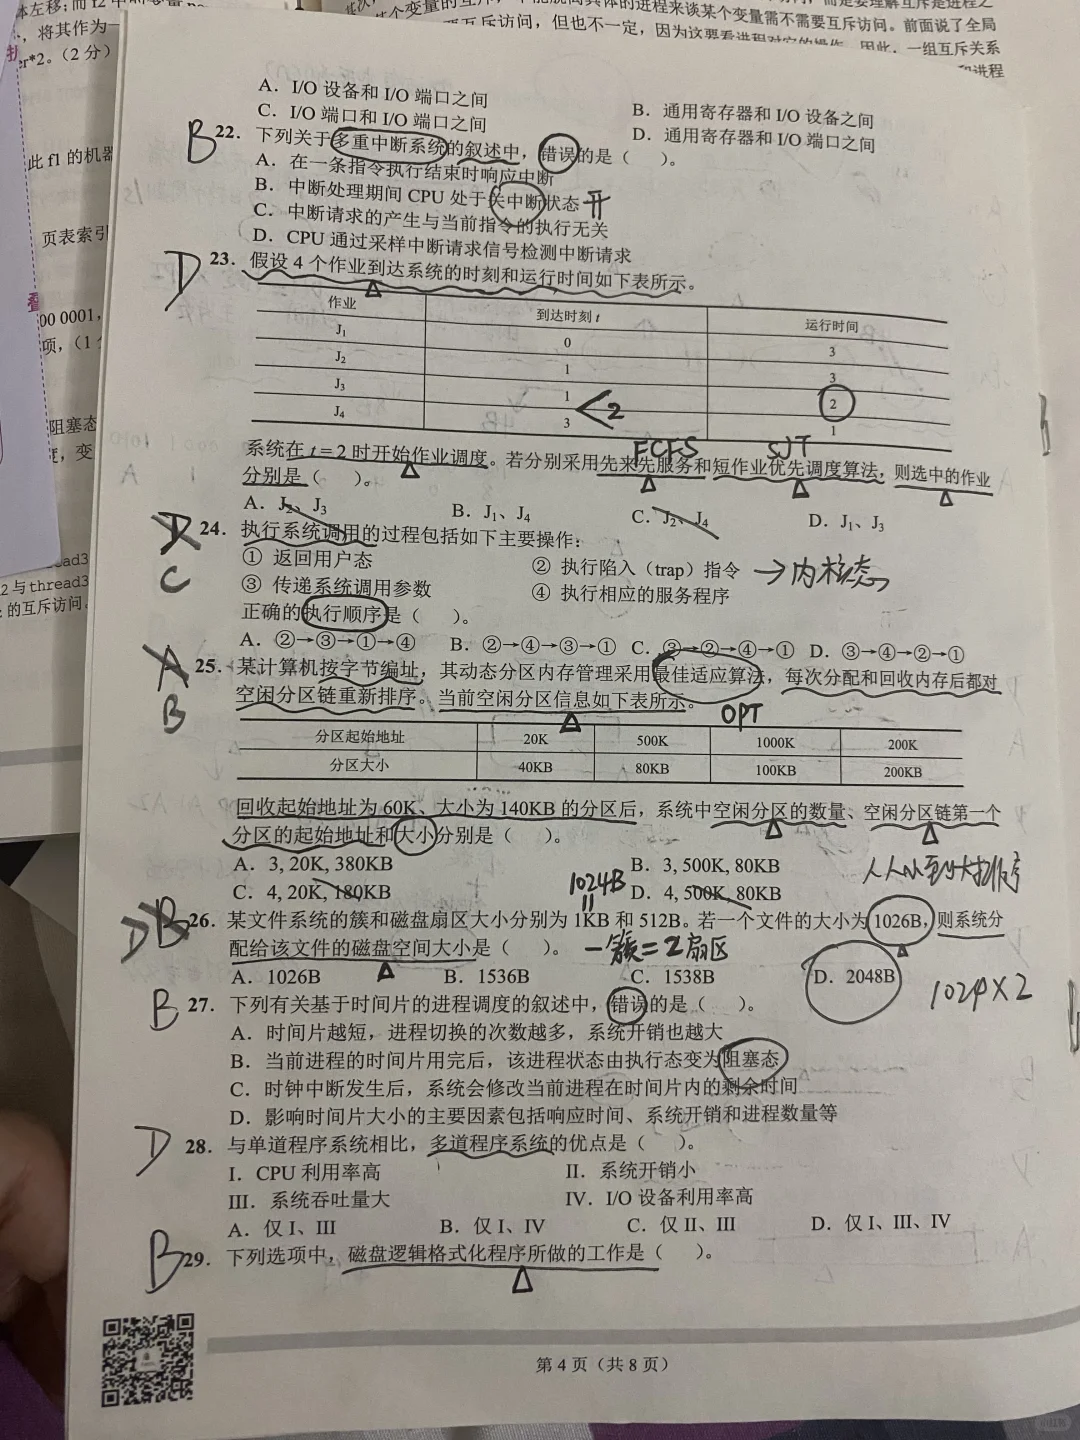 左移；而 f2 中的变量
，将其作为一
er*2。（2 分）
此 f1 的机器
页表索引
00 0001，
项，（1 分
阻塞态
度，变
ead3
2 与 thread3
的互斥访问.
个变量的互斥
体的进程来谈某个变量需不需要互斥访问。前面说了全局
互斥访问，但也不一定，因为这要看进程对它的操作。因此，一组互斥关系
和进程
A．I/O 设备和 I/O 端口之间
B．通用寄存器和 I/O 设备之间
C．I/O 端口和 I/O 端口之间
D．通用寄存器和 I/O 端口之间
B 22．下列关于多重中断系统的叙述中，错误的是（　）。
A．在一条指令执行结束时响应中断
B．中断处理期间 CPU 处于关中断状态 开
C．中断请求的产生与当前指令的执行无关
D．CPU 通过采样中断请求信号检测中断请求
D 23．假设 4 个作业到达系统的时刻和运行时间如下表所示。
作业 到达时刻 t 运行时间
J1 0 3
J2 1 3
J3 1 2
J4 3 1
<2
FCFS SJT
系统在 t = 2 时开始作业调度。若分别采用先来先服务和短作业优先调度算法，则选中的作业
分别是（　）。
A．J2、J3 B．J1、J4 C．J2、J4 D．J1、J3
D 24．执行系统调用的过程包括如下主要操作：
C
① 返回用户态 ② 执行陷入（trap）指令 →内核态
③ 传递系统调用参数 ④ 执行相应的服务程序
正确的执行顺序是（　）。
A．②→③→①→④ B．②→④→③→① C．③→②→④→① D．③→④→②→①
A 25．某计算机按字节编址，其动态分区内存管理采用最佳适应算法，每次分配和回收内存后都对
B 空闲分区链重新排序。当前空闲分区信息如下表所示。
OPT
分区起始地址 20K 500K 1000K 200K
分区大小 40KB 80KB 100KB 200KB
回收起始地址为 60K、大小为 140KB 的分区后，系统中空闲分区的数量、空闲分区链第一个
分区的起始地址和大小分别是（　）。
A．3, 20K, 380KB B．3, 500K, 80KB
C．4, 20K, 180KB D．4, 500K, 80KB
1024B
从小到大排序
D B 26．某文件系统的簇和磁盘扇区大小分别为 1KB 和 512B。若一个文件的大小为 1026B，则系统分
配给该文件的磁盘空间大小是（　）。 一簇＝2扇区
A．1026B B．1536B C．1538B D．2048B
1024×2
B 27．下列有关基于时间片的进程调度的叙述中，错误的是（　）。
A．时间片越短，进程切换的次数越多，系统开销也越大
B．当前进程的时间片用完后，该进程状态由执行态变为阻塞态
C．时钟中断发生后，系统会修改当前进程在时间片内的剩余时间
D．影响时间片大小的主要因素包括响应时间、系统开销和进程数量等
D 28．与单道程序系统相比，多道程序系统的优点是（　）。
I．CPU 利用率高 II．系统开销小
III．系统吞吐量大 IV．I/O 设备利用率高
A．仅 I、III B．仅 I、IV C．仅 II、III D．仅 I、III、IV
B 29．下列选项中，磁盘逻辑格式化程序所做的工作是（　）。
第 4 页（共 8 页）